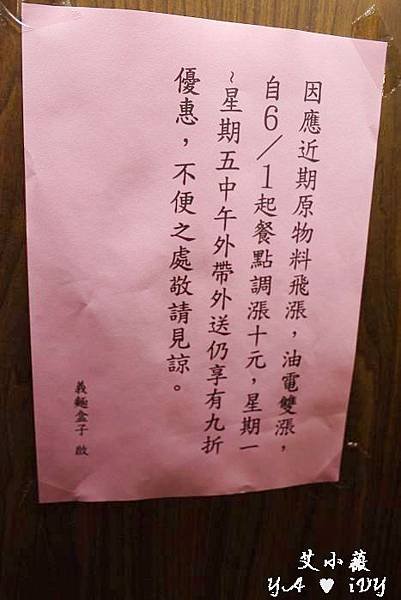 因應近期原物料飛漲，油電雙漲，
自6/1起餐點調漲十元，星期一
~星期五中午外帶外送仍享有九折
優惠，不便之處敬請見諒。
義麵盒子 啟
艾小薇
YA ♥ iVY